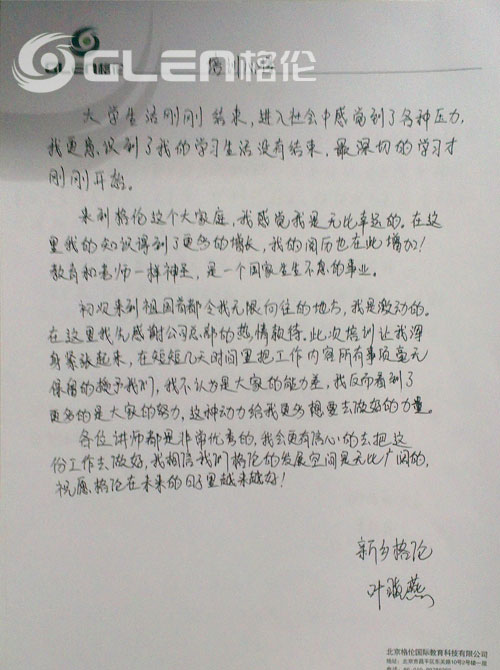 GLEN格伦
GLEN格伦
培训心得
大学生活刚刚结束，进入社会中感觉到了各种压力，
我更意识到了我的学习生活没有结束，最深切的学习才
刚刚开始。
来到格伦这个大家庭，我感觉我是无比幸运的。在这
里我的知识得到了更多的增长，我的阅历也在此增加！
教育和老师一样神圣，是一个国家生生不息的事业。
初次来到祖国首都令我无限向往的地方，我是激动的。
在这里我先感谢公司总部的热情款待。此次培训让我浑
身紧张起来，在短短几天时间里把工作内容所有事项毫无
保留的授予我们，我不认为是大家的能力差，我反而看到了
更多的是大家的努力，这种动力给我更多想要去做好的力量。
各位讲师都是非常优秀的，我会更有信心的去把这
份工作去做好，我相信我们格伦的发展空间是无比广阔的，
祝愿格伦在未来的日子里越来越好！
新乡格伦
叶 燕
北京格伦国际教育科技有限公司
地址：北京市昌平区东关路10号2号楼一层